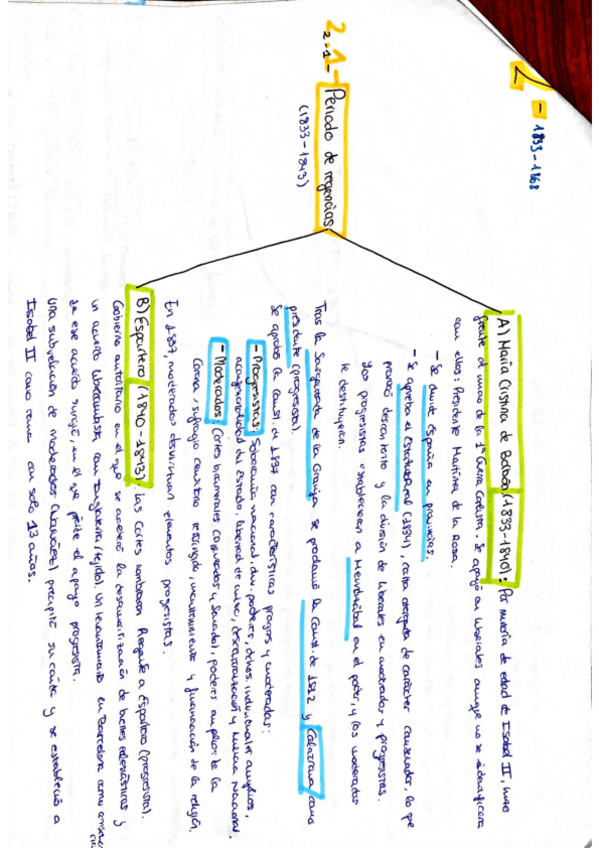 2 - 1833-1868
2.1- Periodo de regencias
(1833-1843)
A) María Cristina de Borbón (1833-1840): Por minoría de edad de Isabel II, hizo
frente al inicio de la 1ª Guerra Carlista. Se apoyó en liberales aunque no se identificara
con ellos: Presidente Martínez de la Rosa.
- Se divide España en provincias.
- Se aprueba el Estatuto Real (1834), carta otorgada de carácter conservador, lo que
provocó descontento y la división de liberales en moderados y progresistas.
Los progresistas establecen a Mendizábal en el poder, y los moderados
le destituyen.
Tras la Sargentada de la Granja se proclamó la Const. de 1812 y Calatrava como
presidente (progresista).
Se aprobó la Const. de 1837 con características progres y moderadas:
- Progresistas: Soberanía nacional, div. poderes, dchos. individuales amplios,
aconfesionalidad del Estado, libertad de culto, descentralización y Milicia Nacional.
- Moderados: Cortes bicamerales (Congreso y Senado), poderes amplios de la
Corona, sufragio censitario restringido, mantenimiento y financiación de la religión.
En 1837, moderados desvirtúan elementos progresistas.
B) Espartero (1840-1843): Las Cortes nombraron Regente a Espartero (progresista).
Gobierno autoritario en el que se aceleró la desamortización de bienes eclesiásticos y
un acuerdo librecambista con Inglaterra (tejido). Un levantamiento en Barcelona como
de ese acuerdo surgió, en el que pierde el apoyo progresista.
Una sublevación de moderados (Narváez) precipitó su caída y se estableció a
Isabel II como reina con solo 13 años.